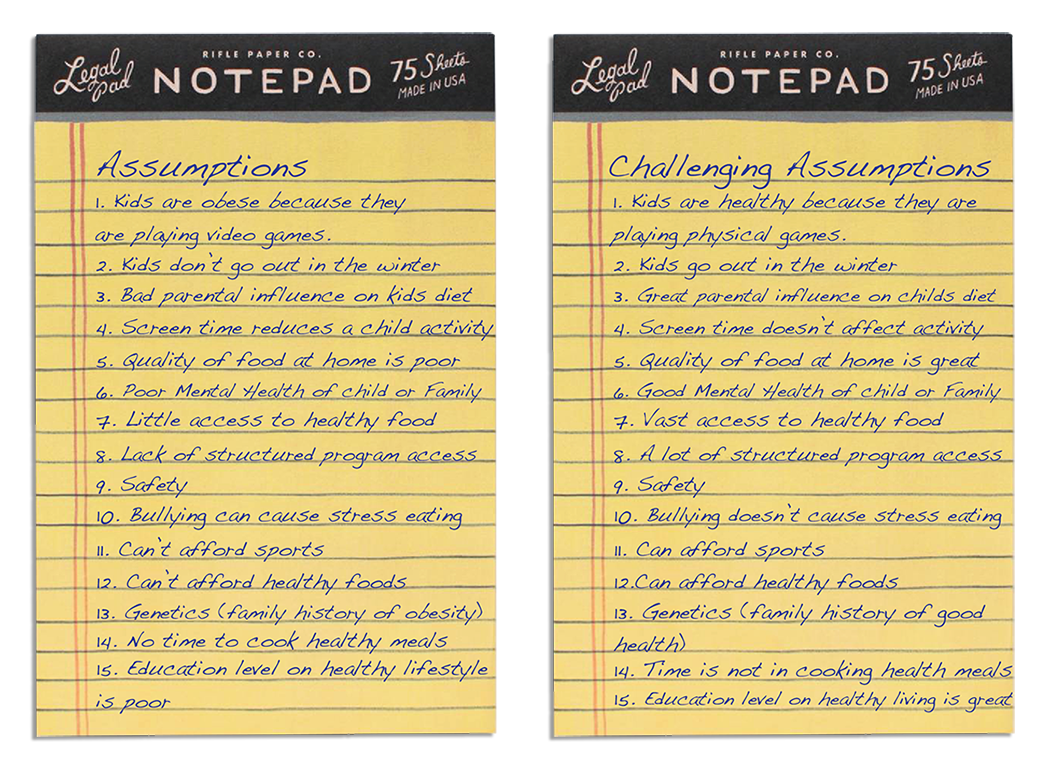 Legal Pad
RIFLE PAPER CO.
NOTEPAD
75 Sheets
MADE IN USA
Assumptions
1. Kids are obese because they
are playing video games.
2. Kids don't go out in the winter
3. Bad parental influence on kids diet
4. Screen time reduces a child activity
5. Quality of food at home is poor
6. Poor Mental Health of child or Family
7. Little access to healthy food
8. Lack of structured program access
9. Safety
10. Bullying can cause stress eating
11. Can't afford sports
12. Can't afford healthy foods
13. Genetics (family history of obesity)
14. No time to cook healthy meals
15. Education level on healthy lifestyle
is poor
Legal Pad
RIFLE PAPER CO.
NOTEPAD
75 Sheets
MADE IN USA
Challenging Assumptions
1. Kids are healthy because they are
playing physical games.
2. Kids go out in the winter
3. Great parental influence on childs diet
4. Screen time doesn't affect activity
5. Quality of food at home is great
6. Good Mental Health of child or Family
7. Vast access to healthy food
8. A lot of structured program access
9. Safety
10. Bullying doesn't cause stress eating
11. Can afford sports
12.Can afford healthy foods
13. Genetics (family history of good
health)
14. Time is not in cooking health meals
15. Education level on healthy living is great